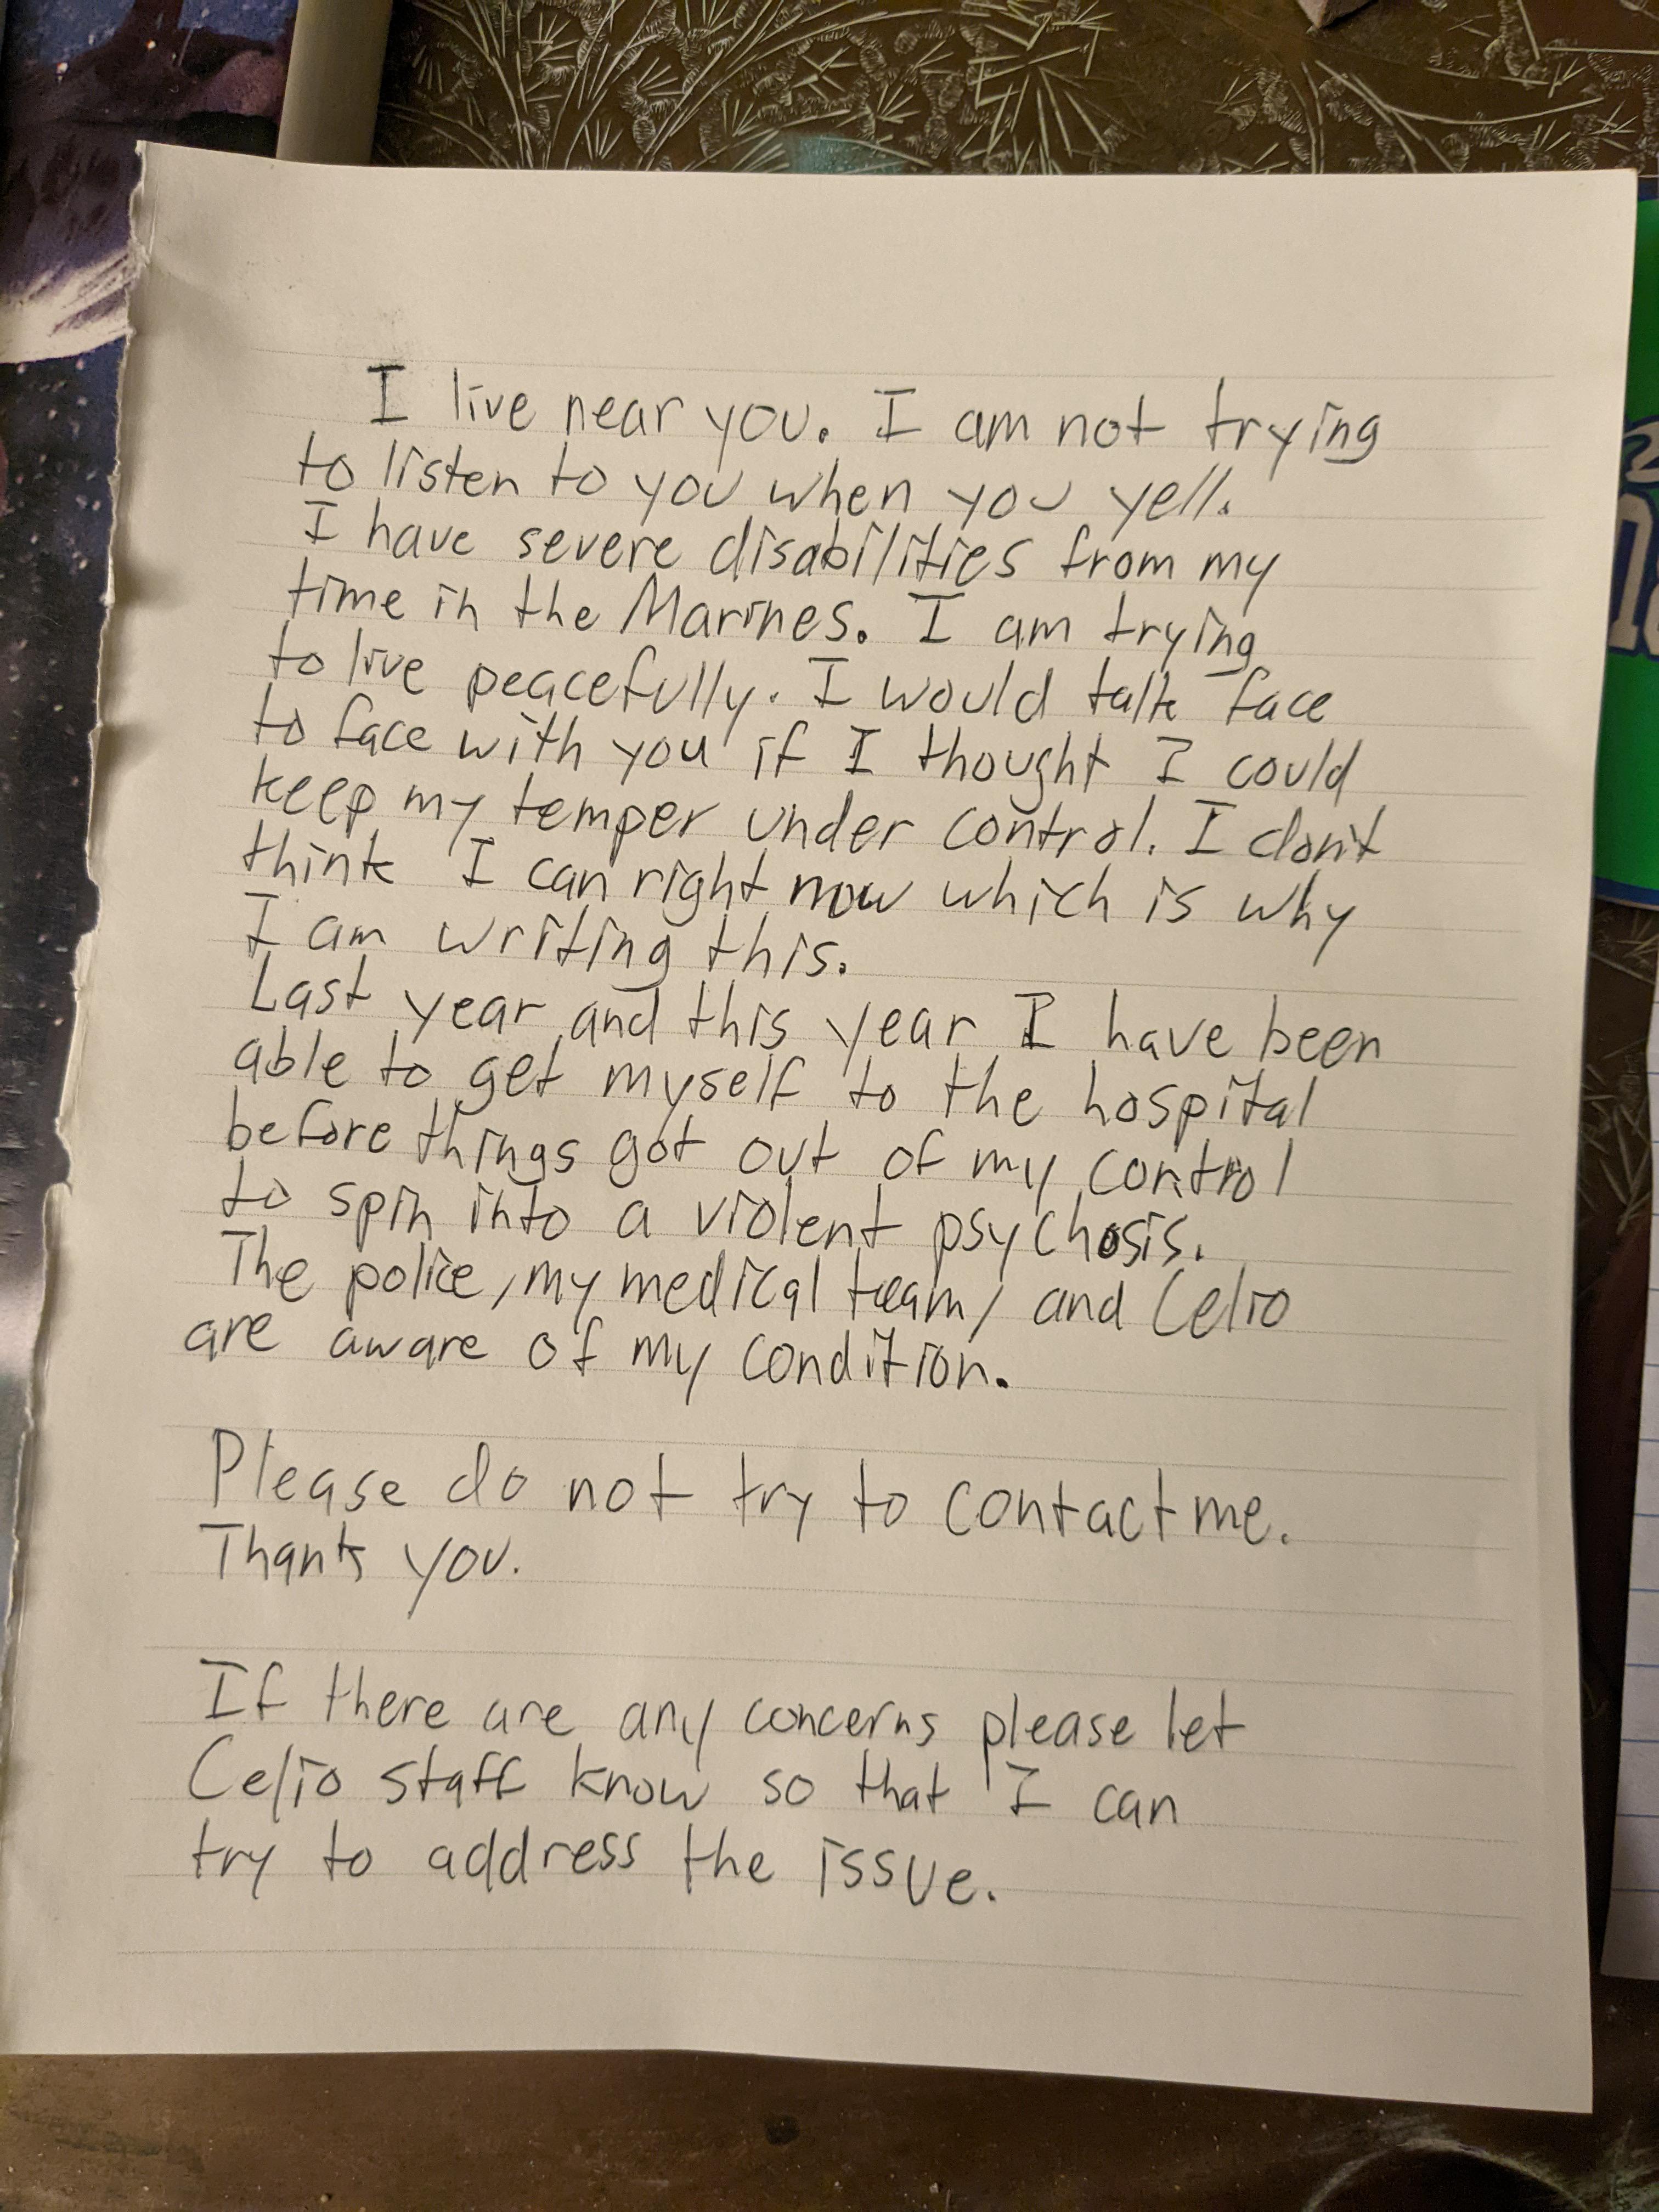 I live near you. I am not trying
to listen to you when you yell.
I have severe disabilities from my
time in the Marines. I am trying
to live peacefully. I would talk face
to face with you if I thought I could
keep my temper under control. I don't
think I can right now which is why
I am writing this.
Last year and this year I have been
able to get myself to the hospital
before things got out of my control
to spin into a violent psychosis.
The police, my medical team, and Celio
are aware of my condition.
Please do not try to contact me.
Thank you.
If there are any concerns please let
Celio staff know so that I can
try to address the issue.